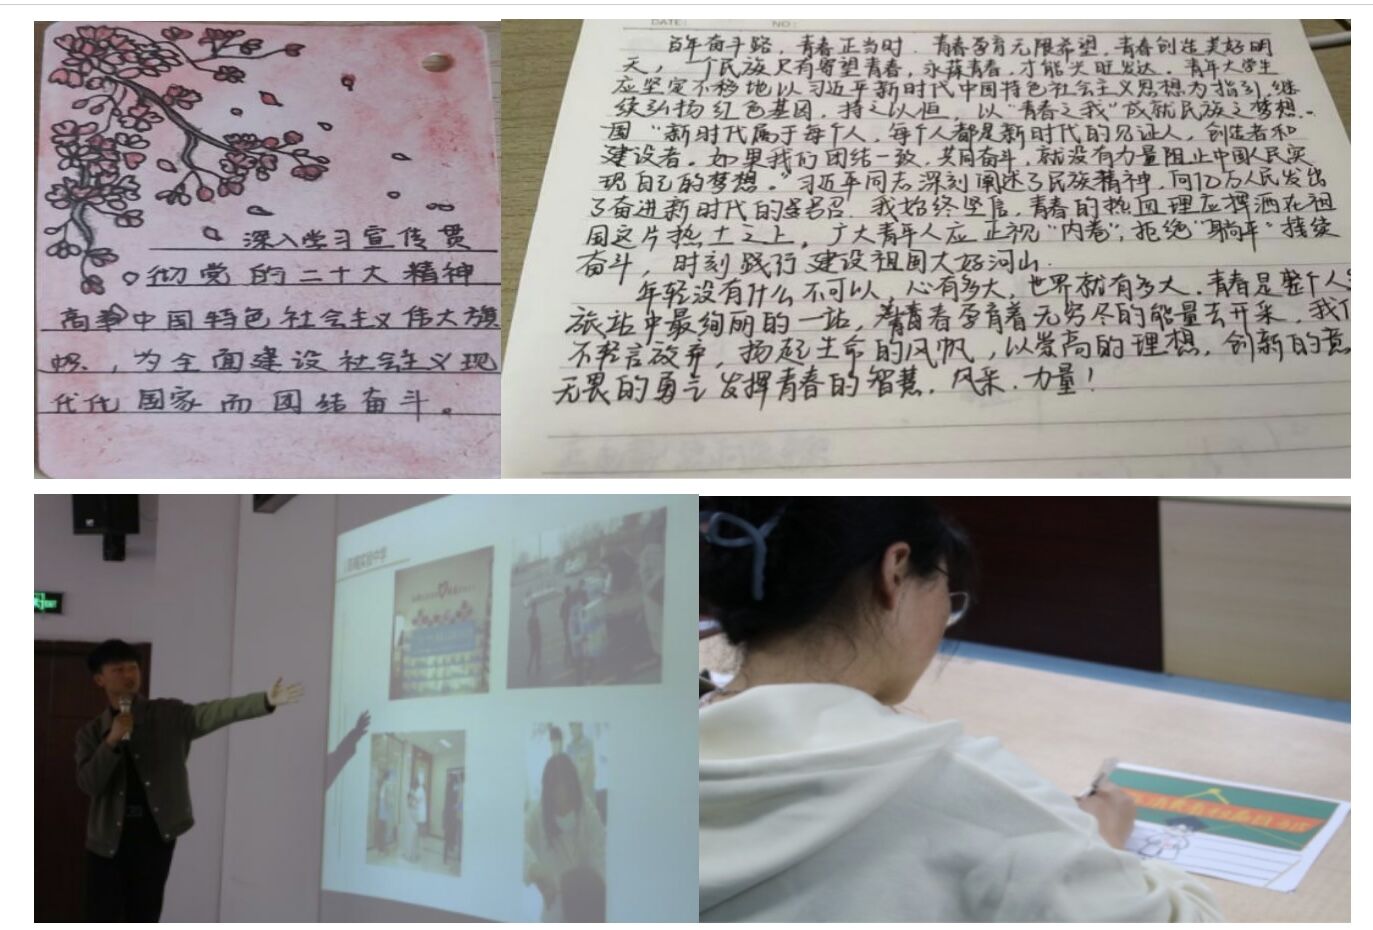 深入学习宣传贯
彻党的二十大精神
高举中国特色社会主义伟大旗
帜，为全面建设社会主义现
代化国家而团结奋斗。
DATE: NO:
百年奋斗路，青春正当时．青春孕育无限希望，青春创造美好明
天，一个民族只有寄望青春，永葆青春，才能兴旺发达．青年大学生
应坚定不移地以习近平新时代中国特色社会主义思想为指引，继
续弘扬红色基因，持之以恒，以“青春之我”成就民族之梦想．
国“新时代属于每个人，每个人都是新时代的见证人，创造者和
建设者．如果我们团结一致，共同奋斗，就没有力量阻止中国人民实
现自己的梦想．”习近平同志深刻阐述了民族精神，向亿万人民发出
了奋进新时代的号召．我始终坚信，青春的热血理应挥洒在祖
国这片热土之上，广大青年人应正视“内卷”，拒绝“躺平”持续
奋斗，时刻践行建设祖国大好河山．
年轻没有什么不可以，心有多大，世界就有多大．青春是整个人
旅站中最绚丽的一站，青春孕育着无穷尽的能量去开采，我们
不轻言放弃，扬起生命的风帆，以崇高的理想，创新的意
无畏的勇气发挥青春的智慧．风采．力量！